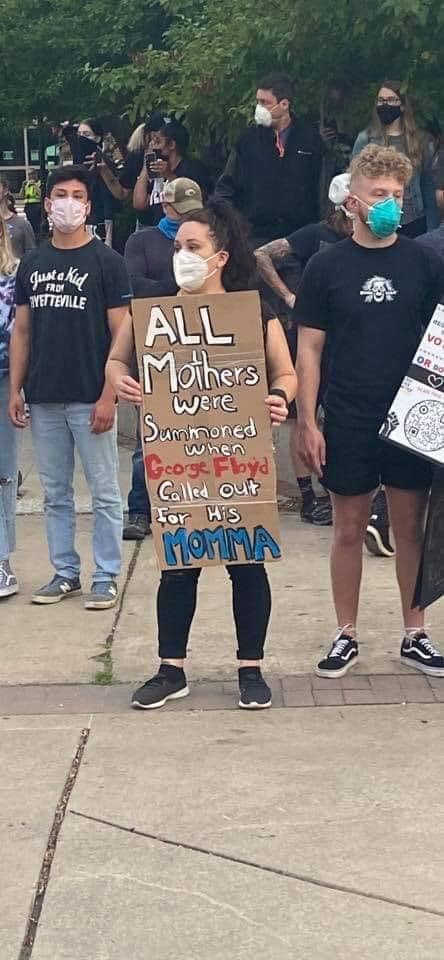 Just a Kid
FROM
ALL
Mothers
were
Summoned
when
George Floyd
Called out
for His
MOMMA
VO
OR